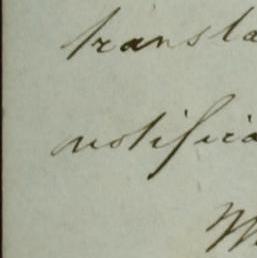 transla
notifica
M